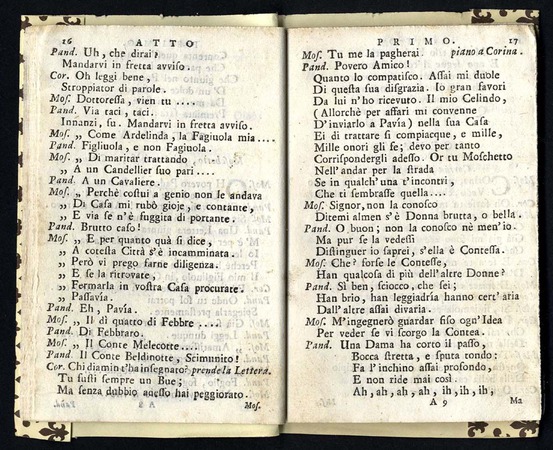 16 ATTO
Pand. Uh, che dirai?
Mandarvi in fretta avviso.
Cor. Oh leggi bene,
Stroppiator di parole.
Mos. Dottoressa, vien tu ....
Pand. Via taci, taci.
Innanzi, su. Mandarvi in fretta avviso.
Mos. „ Come Ardelinda, la Fagiuola mia ....
Pand. Figliuola, e non Fagiuola.
Mos. „ Di maritar trattando,
„ A un Candellier suo pari ....
Pand. A un Cavaliere.
Mos. „ Perchè costui a genio non le andava
„ Di Casa mi rubò gioje, e contante,
„ E via se n'è fuggita di portante.
Pand. Brutto caso!
Mos. „ E per quanto quà si dice,
„ A cotesta Città s'è incamminata.
„ Però vi prego farne diligenza.
„ E se la ritrovate,
„ Fermarla in vostra Casa procurate.
„ Passavia.
Pand. Eh, Pavia.
Mos. „ Il di quatto di Febbre ....
Pand. Di Febbraro.
Mos. „ Il Conte Melecotte ....
Pand. Il Conte Beldinotte, Scimunito!
Cor. Chi diamin t'ha insegnato? prende la Lettera.
Tu fusti sempre un Bue;
Ma senza dubbio adesso hai peggiorato.
Mos.
PRIMO. 17
Mos. Tu me la pagherai. piano a Corina.
Pand. Povero Amico!
Quanto lo compatisco. Assai mi duole
Di questa sua disgrazia. Io gran favori
Da lui n'ho ricevuto. Il mio Celindo,
(Allorchè per affari mi convenne
D'inviarlo a Pavia) nella sua Casa
Ei di trattare si compiacque, e mille,
Mille onori gli fe; devo per tanto
Corrispondergli adesso. Or tu Moschetto
Nell'andar per la strada
Se in qualch'una t'incontri,
Che ti sembrasse quella ....
Mos. Signor, non la conosco
Ditemi almen s'è Donna brutta, o bella.
Pand. O buon; non la conosco nè men'io.
Ma pur se la vedessi
Distinguer io saprei, s'ella è Contessa.
Mos. Che? forse le Contesse,
Han qualcosa di più dell'altre Donne?
Pand. Sì ben, sciocco, che sei;
Han brio, han leggiadrìa hanno cert'aria
Dall'altre assai divaria.
Mos. M'ingegnerò guardar fiso ogn'Idea
Per veder se vi scorgo la Contea.
Pand. Una Dama ha corto il passo,
Bocca stretta, e sputa tondo:
Fa l'inchino assai profondo,
E non ride mai così.
Ah, ah, ah, ah, ih, ih, ih,
A 9 Ma